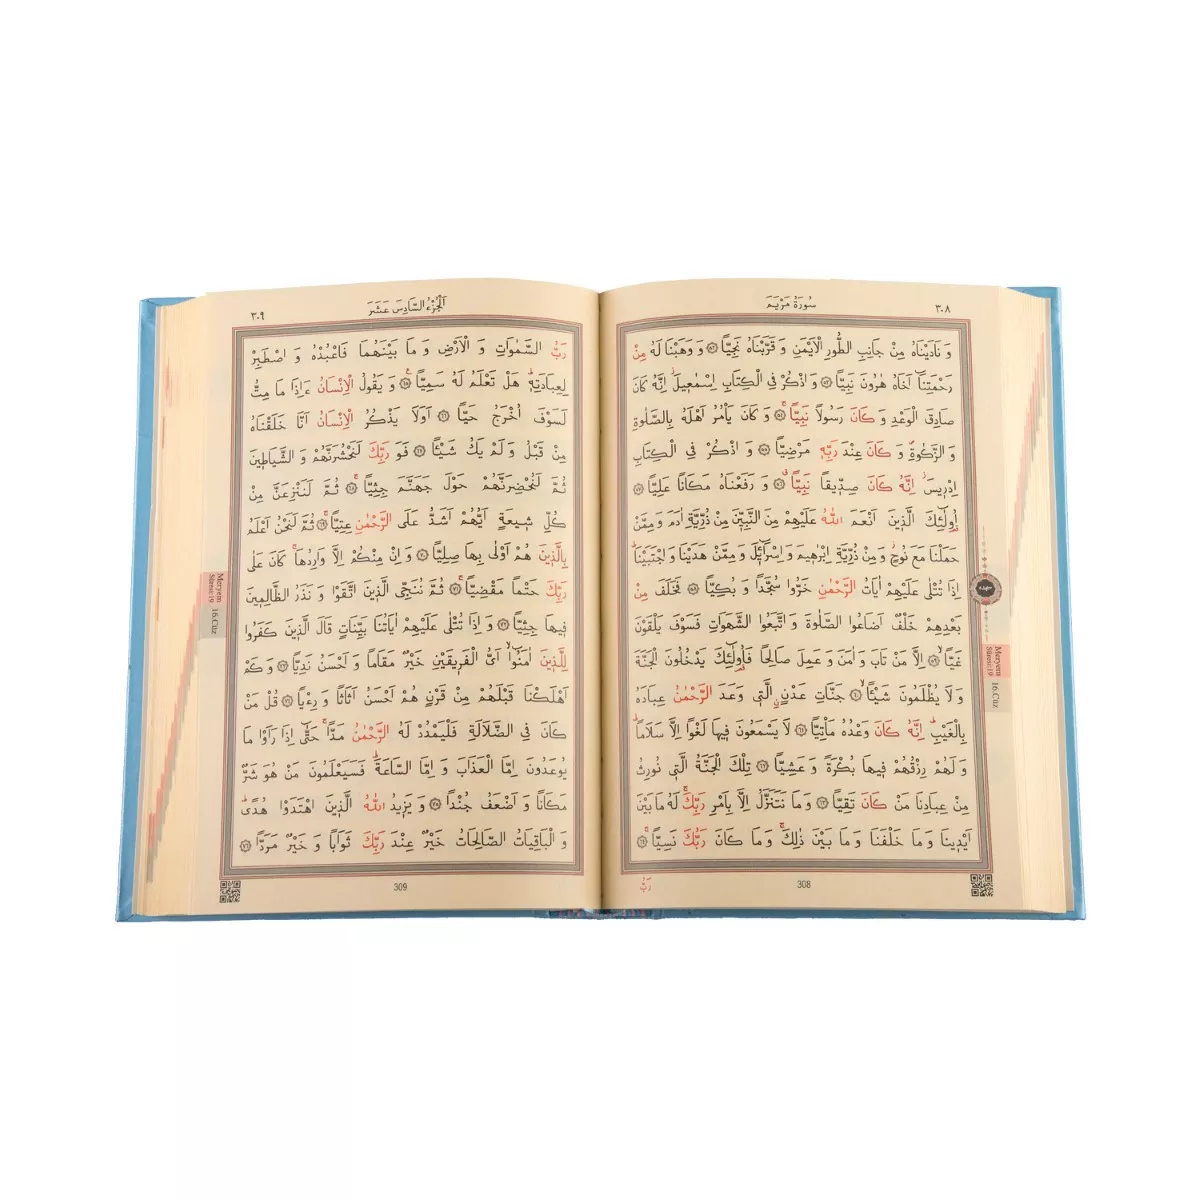 سُورَةُ مَرْيَمَ
٣٠٨
وَ نَادَيْنَاهُ مِنْ جَانِبِ الطُّورِ الْاَيْمَنِ وَ قَرَّبْنَاهُ نَجِيًّا ﴿٥٢﴾ وَ وَهَبْنَا لَهُ مِنْ
رَحْمَتِنَا اَخَاهُ هٰرُونَ نَبِيًّا ﴿٥٣﴾ وَ اذْكُرْ فِي الْكِتَابِ اِسْمٰعِيلَ اِنَّهُ كَانَ
صَادِقَ الْوَعْدِ وَ كَانَ رَسُولاً نَبِيًّا ﴿٥٤﴾ وَ كَانَ يَأْمُرُ اَهْلَهُ بِالصَّلٰوةِ
وَ الزَّكٰوةِ وَ كَانَ عِنْدَ رَبِّهِ مَرْضِيًّا ﴿٥٥﴾ وَ اذْكُرْ فِي الْكِتَابِ
اِدْرِيسَ اِنَّهُ كَانَ صِدِّيقًا نَبِيًّا ﴿٥٦﴾ وَ رَفَعْنَاهُ مَكَانًا عَلِيًّا ﴿٥٧﴾
اُولٰئِكَ الَّذِينَ اَنْعَمَ اللّٰهُ عَلَيْهِمْ مِنَ النَّبِيّٖنَ مِنْ ذُرِّيَّةِ اٰدَمَ وَ مِمَّنْ
حَمَلْنَا مَعَ نُوحٍ وَ مِنْ ذُرِّيَّةِ اِبْرٰهِيمَ وَ اِسْرَائِلَ وَ مِمَّنْ هَدَيْنَا وَ اجْتَبَيْنَا
اِذَا تُتْلٰى عَلَيْهِمْ اٰيَاتُ الرَّحْمٰنِ خَرُّوا سُجَّدًا وَ بُكِيًّا ﴿٥٨﴾ فَخَلَفَ مِنْ
بَعْدِهِمْ خَلْفٌ اَضَاعُوا الصَّلٰوةَ وَ اتَّبَعُوا الشَّهَوَاتِ فَسَوْفَ يَلْقَوْنَ
غَيًّا ﴿٥٩﴾ اِلَّا مَنْ تَابَ وَ اٰمَنَ وَ عَمِلَ صَالِحًا فَاُولٰئِكَ يَدْخُلُونَ الْجَنَّةَ
وَ لَا يُظْلَمُونَ شَيْئًا ﴿٦٠﴾ جَنَّاتِ عَدْنٍ الَّتِي وَعَدَ الرَّحْمٰنُ عِبَادَهُ
بِالْغَيْبِ اِنَّهُ كَانَ وَعْدُهُ مَأْتِيًّا ﴿٦١﴾ لَا يَسْمَعُونَ فِيهَا لَغْوًا اِلَّا سَلَامًا
وَ لَهُمْ رِزْقُهُمْ فِيهَا بُكْرَةً وَ عَشِيًّا ﴿٦٢﴾ تِلْكَ الْجَنَّةُ الَّتِي نُورِثُ
مِنْ عِبَادِنَا مَنْ كَانَ تَقِيًّا ﴿٦٣﴾ وَ مَا نَتَنَزَّلُ اِلَّا بِاَمْرِ رَبِّكَ لَهُ مَا بَيْنَ
اَيْدِينَا وَ مَا خَلْفَنَا وَ مَا بَيْنَ ذٰلِكَ وَ مَا كَانَ رَبُّكَ نَسِيًّا ﴿٦٤﴾
رَبُّ
308
Meryem
Sûresi:19
16.Cüz
اَلْجُزْءُ السَّادِسَ عَشَرَ
٣٠٩
رَبُّ السَّمٰوَاتِ وَ الْاَرْضِ وَ مَا بَيْنَهُمَا فَاعْبُدْهُ وَ اصْطَبِرْ
لِعِبَادَتِهِ هَلْ تَعْلَمُ لَهُ سَمِيًّا ﴿٦٥﴾ وَ يَقُولُ الْاِنْسَانُ ءَاِذَا مَا مِتُّ
لَسَوْفَ اُخْرَجُ حَيًّا ﴿٦٦﴾ اَوَلَا يَذْكُرُ الْاِنْسَانُ اَنَّا خَلَقْنَاهُ
مِنْ قَبْلُ وَ لَمْ يَكُ شَيْئًا ﴿٦٧﴾ فَوَ رَبِّكَ لَنَحْشُرَنَّهُمْ وَ الشَّيَاطِينَ
ثُمَّ لَنُحْضِرَنَّهُمْ حَوْلَ جَهَنَّمَ جِثِيًّا ﴿٦٨﴾ ثُمَّ لَنَنْزِعَنَّ مِنْ
كُلِّ شِيعَةٍ اَيُّهُمْ اَشَدُّ عَلَى الرَّحْمٰنِ عِتِيًّا ﴿٦٩﴾ ثُمَّ لَنَحْنُ اَعْلَمُ
بِالَّذِينَ هُمْ اَوْلٰى بِهَا صِلِيًّا ﴿٧٠﴾ وَ اِنْ مِنْكُمْ اِلَّا وَارِدُهَا كَانَ عَلٰى
رَبِّكَ حَتْمًا مَقْضِيًّا ﴿٧١﴾ ثُمَّ نُنَجِّي الَّذِينَ اتَّقَوْا وَ نَذَرُ الظَّالِمِينَ
فِيهَا جِثِيًّا ﴿٧٢﴾ وَ اِذَا تُتْلٰى عَلَيْهِمْ اٰيَاتُنَا بَيِّنَاتٍ قَالَ الَّذِينَ كَفَرُوا
لِلَّذِينَ اٰمَنُوا اَيُّ الْفَرِيقَيْنِ خَيْرٌ مَقَامًا وَ اَحْسَنُ نَدِيًّا ﴿٧٣﴾ وَ كَمْ
اَهْلَكْنَا قَبْلَهُمْ مِنْ قَرْنٍ هُمْ اَحْسَنُ اَثَاثًا وَ رِءْيًا ﴿٧٤﴾ قُلْ مَنْ
كَانَ فِي الضَّلَالَةِ فَلْيَمْدُدْ لَهُ الرَّحْمٰنُ مَدًّا حَتّٰى اِذَا رَاَوْا مَا
يُوعَدُونَ اِمَّا الْعَذَابَ وَ اِمَّا السَّاعَةَ فَسَيَعْلَمُونَ مَنْ هُوَ شَرٌّ
مَكَانًا وَ اَضْعَفُ جُنْدًا ﴿٧٥﴾ وَ يَزِيدُ اللّٰهُ الَّذِينَ اهْتَدَوْا هُدًى
وَ الْبَاقِيَاتُ الصَّالِحَاتُ خَيْرٌ عِنْدَ رَبِّكَ ثَوَابًا وَ خَيْرٌ مَرَدًّا ﴿٧٦﴾
309
Meryem
Sûresi:19
16.Cüz